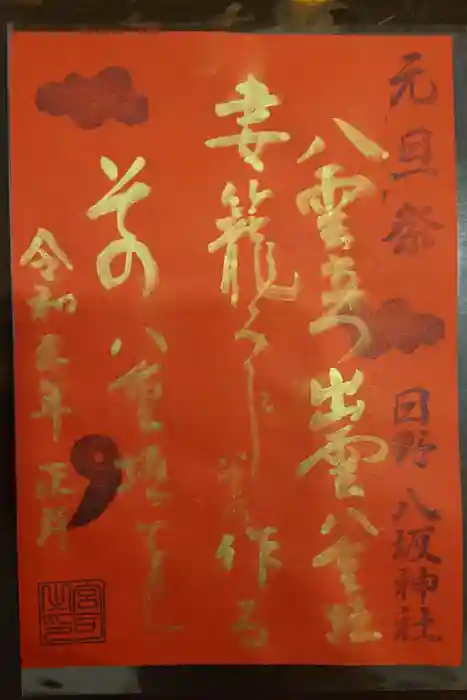 元旦祭 日野八坂神社
八雲立つ出雲八重垣
妻籠みに八重垣作る
その八重垣
令和五年正月
宮司之印